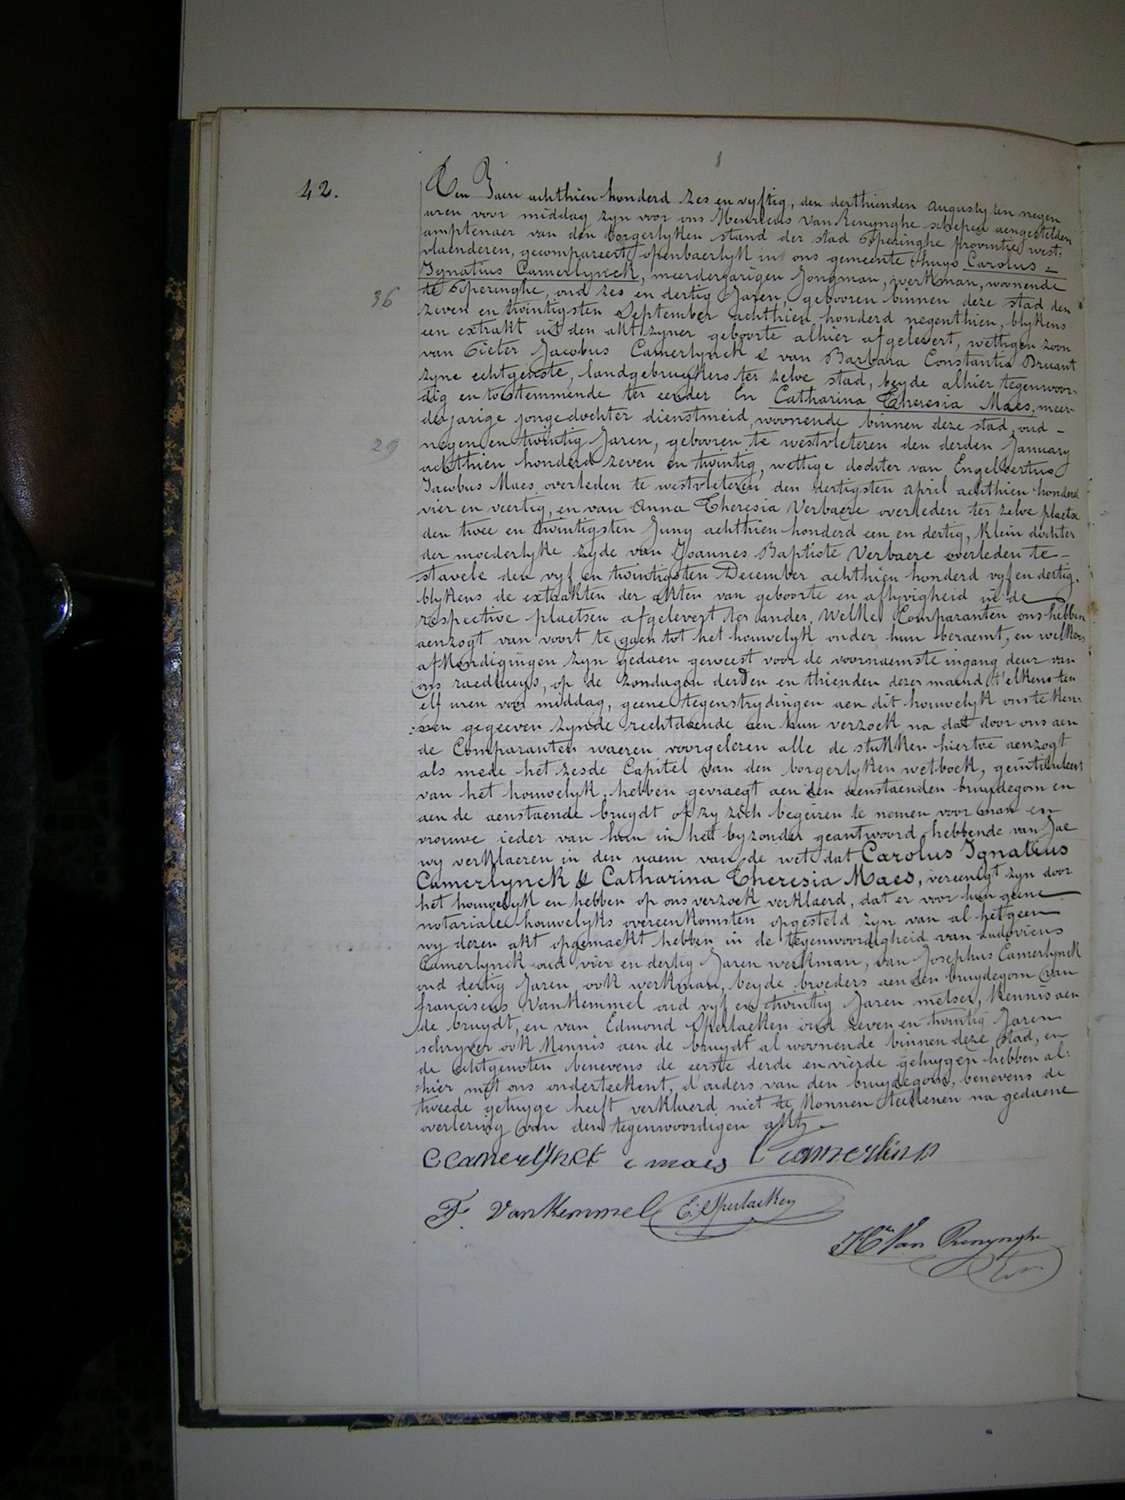 42.
Den Jaere achthien honderd zes en vyftig, den derthienden Augusty ten negen
uren voor middag zyn voor ons Henricus Van Renynghe schepen aengestelden
amptenaer van den borgerlyken stand der stad Poperinghe provintie west-
vlaenderen, gecompareert openbaerlyk in ons gemeente huys Carolus
Ignatius Camerlynck, meerderjarigen Jongman, werkman, woonende
36
te Poperinghe, oud zes en dertig Jaren, gebooren binnen deze stad den
zeven en twintigsten September achthien honderd negenthien, blykens
een extrakt uit den akt zyner geboorte alhier afgelevert, wettigen zoon
van Pieter Jacobus Camerlynck & van Barbara Constantia Bruant
zyne echtgenote, landgebruykers ter zelve stad, beyde alhier tegenwoor-
dig en toestemmende ter eender En Catharina Theresia Maes, meer-
derjarige jonge dochter dienstmeid, woonende binnen deze stad, oud
29
negen en twintig Jaren, gebooren te westvleteren den derden January
achthien honderd zeven en twintig, wettige dochter van Engelbertus
Jacobus Maes overleden te westvleteren den dertigsten april achthien honderd
vier en veertig, en van Anna Theresia Verbaere overleden ter zelve plaetse
den twee en twintigsten Juny achthien honderd een en dertig, klein dochter
der moederlyke zyde van Joannes Baptiste Verbaere overleden te
stavele den vyf en twintigsten December achthien honderd vyf en dertig,
blykens de extrakten der akten van geboorte en aflyvigheid in de
respective plaetsen afgelevert ter ander, Welke Comparanten ons hebben
aenzogt van voort te gaen tot het houwelyk onder hun beraemt, en welkers
afkondigingen zyn gedaen geweest voor de voornaemste ingang deur van
ons raedhuys, op de zondagen derden en thienden dezer maend t'elkens ten
elf uren voor middag, geene tegenstrydingen aen dit houwelyk ons te ken-
nen gegeeven zynde rechtdoende aen hun verzoek na dat door ons aen
de Comparanten waeren voorgelezen alle de stukken hiertoe aenzogt
als mede het zesde Capitel van den borgerlyken wetboek, geïntituleert
van het houwelyk, hebben gevraegt aen den aenstaenden bruydegom en
aen de aenstaende bruydt of zy zich begeiren te nemen voor man en
vrouwe ieder van hun in het byzonder geantwoord hebbende van Jae
wy verklaeren in den naem van de wet dat Carolus Ignatius
Camerlynck & Catharina Theresia Maes, vereenigt zyn door
het houwelyk en hebben op ons verzoek verklaerd, dat er voor hun geene
notariale houwelyks overeenkomsten opgesteld zyn van al hetgeen
wy dezen akt opgemaekt hebben in de tegenwoordigheid van Ludovicus
Camerlynck oud vier en dertig Jaren werkman, van Josephus Camerlynck
oud dertig Jaren, ook werkman, beyde broeders aen den bruydegom van
franciscus Vankemmel oud vyf en twintig Jaren metser, kennis aen
de bruydt, en van Edmond Sperlaeken oud zeven en twintig Jaren
schryver ook kennis aen de bruydt al woonende binnen deze stad, en
de echtgenoten benevens de eerste derde en vierde getuygen hebben al-
hier met ons onderteekent, d'ouders van den bruydegom, benevens de
tweede getuyge heeft verklaerd niet te konnen teekenen na gedaene
overlezing van den tegenwoordigen akt.
C Camerlynck c maes L Camerlinn
F. VanKemmel E. Sperlaeken
Hri Van Renynghe